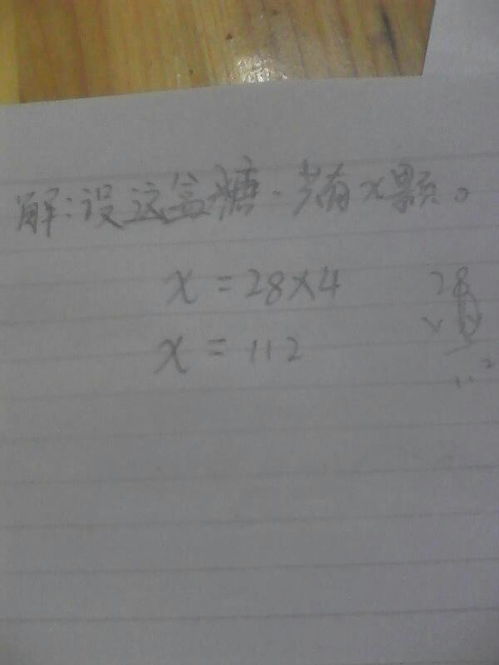 解:设这盒糖一共有x颗。
x=28×4
x=112
28
112